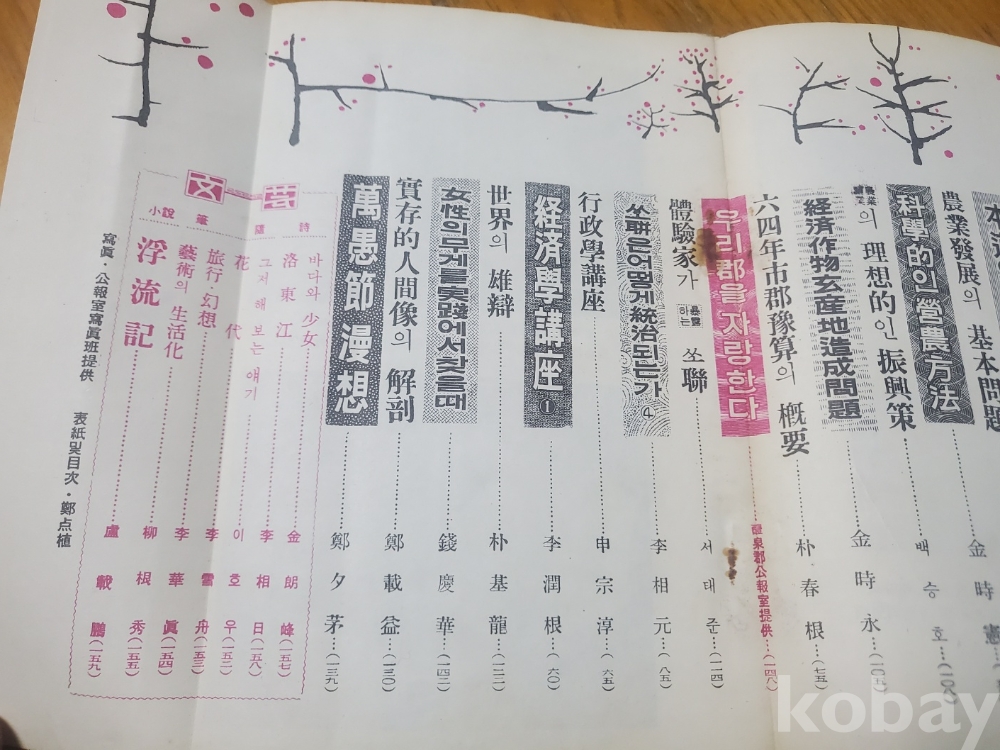 農業發展의 基本問題……金時憲…
科學的인 營農方法……백승호…(一○六)
의 理想的인 振興策
経済作物主産地造成問題……金時永…(一○五)
六四年市郡豫算의 概要……朴春根…(七五)
우리 郡을 자랑한다……醴泉郡公報室提供…(一四八)
體驗家가 暴露하는 쏘聯……서태준…(一一四)
쏘聯은 어떻게 統治되는가 ④……李相元…(八五)
行政學講座……申宗淳…(六五)
経済學講座 ①……李潤根…(六○)
世界의 雄辯……朴基龍…(一二二)
女性의 무게를 実踐에서 갖을때……錢慶華…(一四二)
實存的人間像의 解剖……鄭載益…(一三○)
萬愚節漫想……鄭夕茅…(一三九)
文芸
詩
바다와 少女……金朗峰(一五七)
洛東江……李相日(一五八)
隨筆
그저 해 보는 얘기……이호우(一五二)
花代……李雪舟(一五三)
旅行 幻想……李華眞(一五四)
藝術의 生活化……柳根秀(一五五)
小說
浮流記……盧戰鵬(一五九)
寫眞・公報室寫眞班提供
表紙및目次・鄭点植
kobay